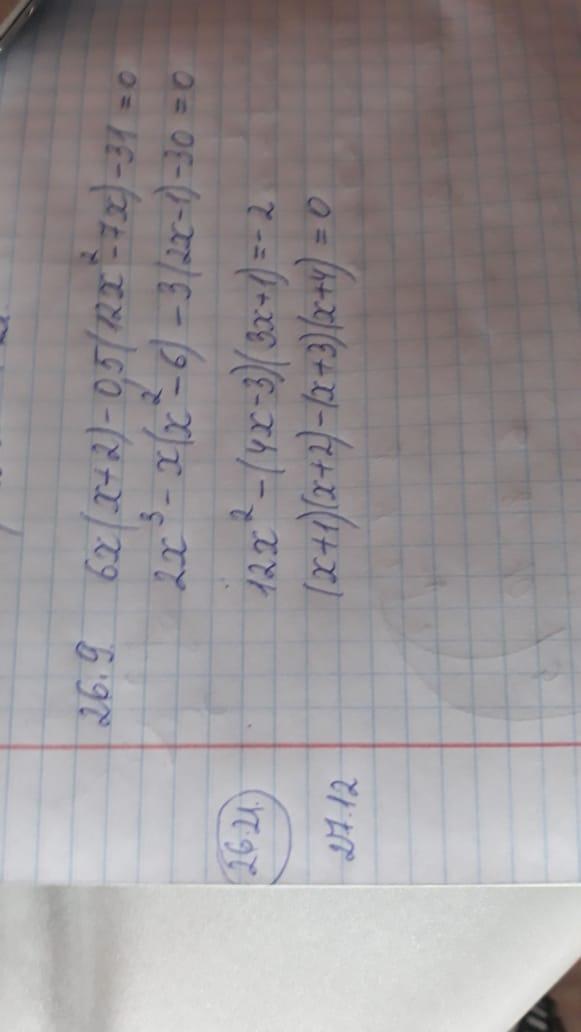 26.9. 6x(x+2)-0,5(12x²-7x)-31=0
2x³-x(x²-6)-3(2x-1)-30=0
26.21. 12x²-(4x-3)(3x+1)=-2
27.12 (x+1)(x+2)-(x+3)(x+4)=0